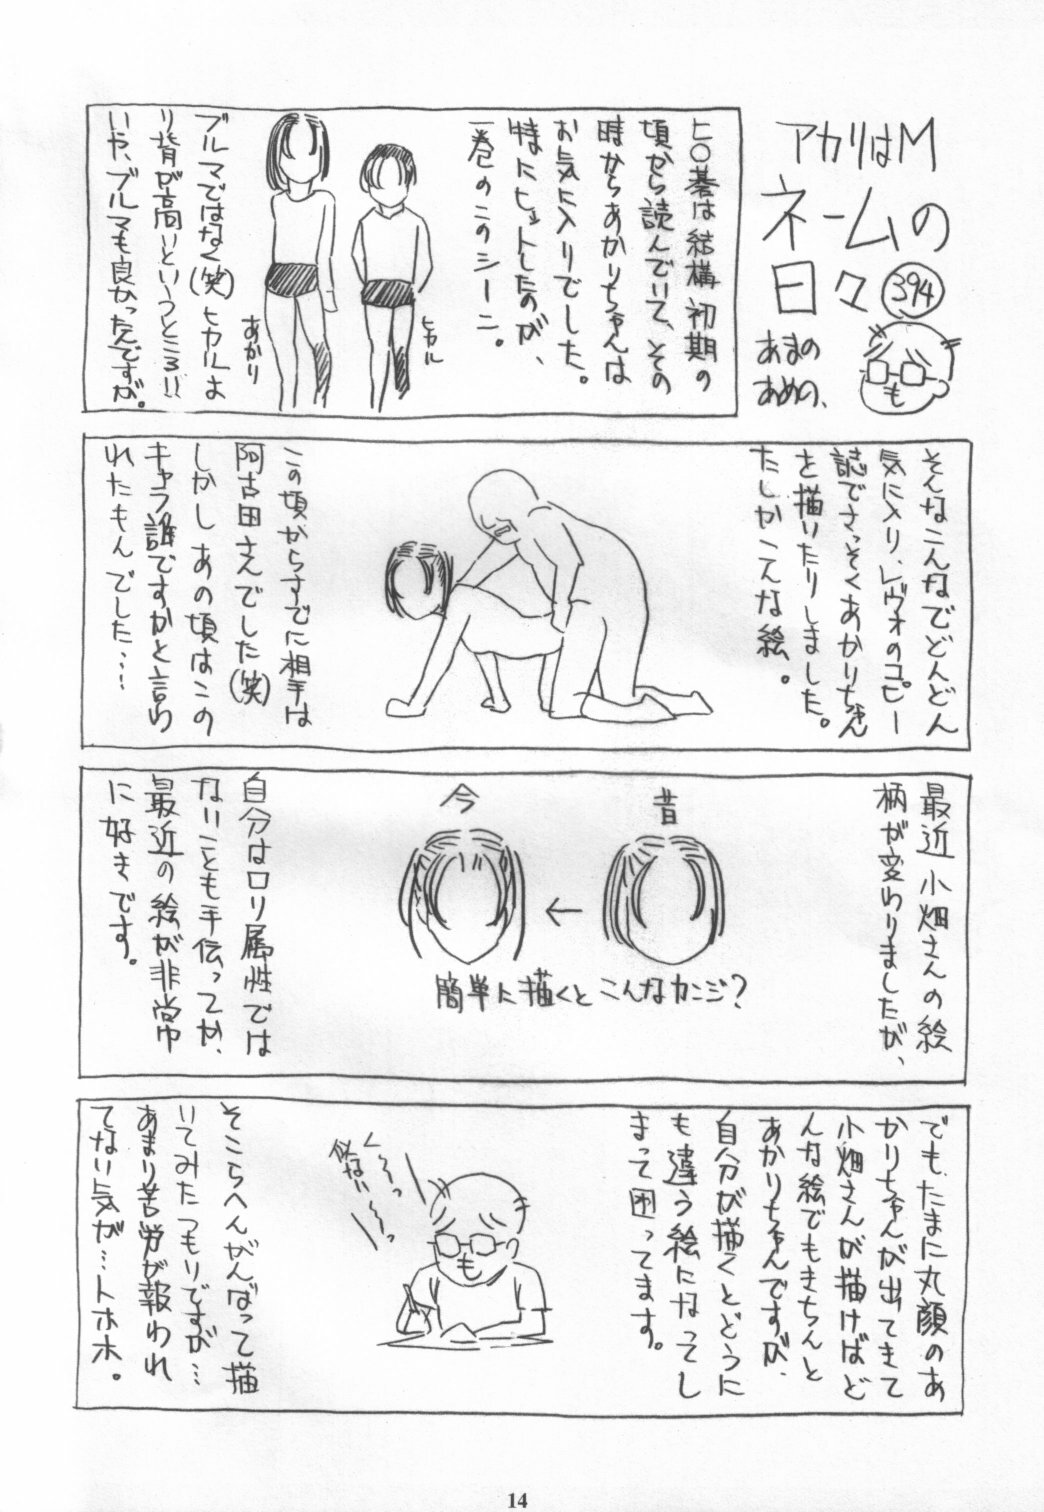 アカリはM
ネームの
日々
394
あまの
あめの、
ヒ〇碁は結構初期の
頃から読んでいて、その
時からあかりちゃんは
お気に入りでした。
特にヒットしたのが、
一巻のこのシーン。
ヒカル
あかり
ブルマではなく(笑)ヒカルよ
り背が高いというところ!!
いや、ブルマも良かったんですが。
そんなこんなでどんどん
気に入り、レヴォのコピー
誌でさっそくあかりちゃん
を描いたりしました。
たしかこんな絵。
この頃からすでに相手は
阿古田さんでした(笑)
しかしあの頃はこの
キャラ誰ですかと言わ
れたもんでした……
最近小畑さんの絵
柄が変わりましたが、
昔
←
今
簡単に描くとこんなカンジ?
自分はロリ属性では
ないことも手伝ってか、
最近の絵が非常
に好きです。
でも、たまに丸顔のあ
かりちゃんが出てきて
小畑さんが描けばど
んな絵でもきちんと
あかりちゃんですが、
自分が描くとどうに
も違う絵になってし
まって困ってます。
く〜〜っ
似ない〜〜っ
そこらへんがんばって描
いてみたつもりですが…
あまり苦労が報われ
てない気が…トホホ。
14